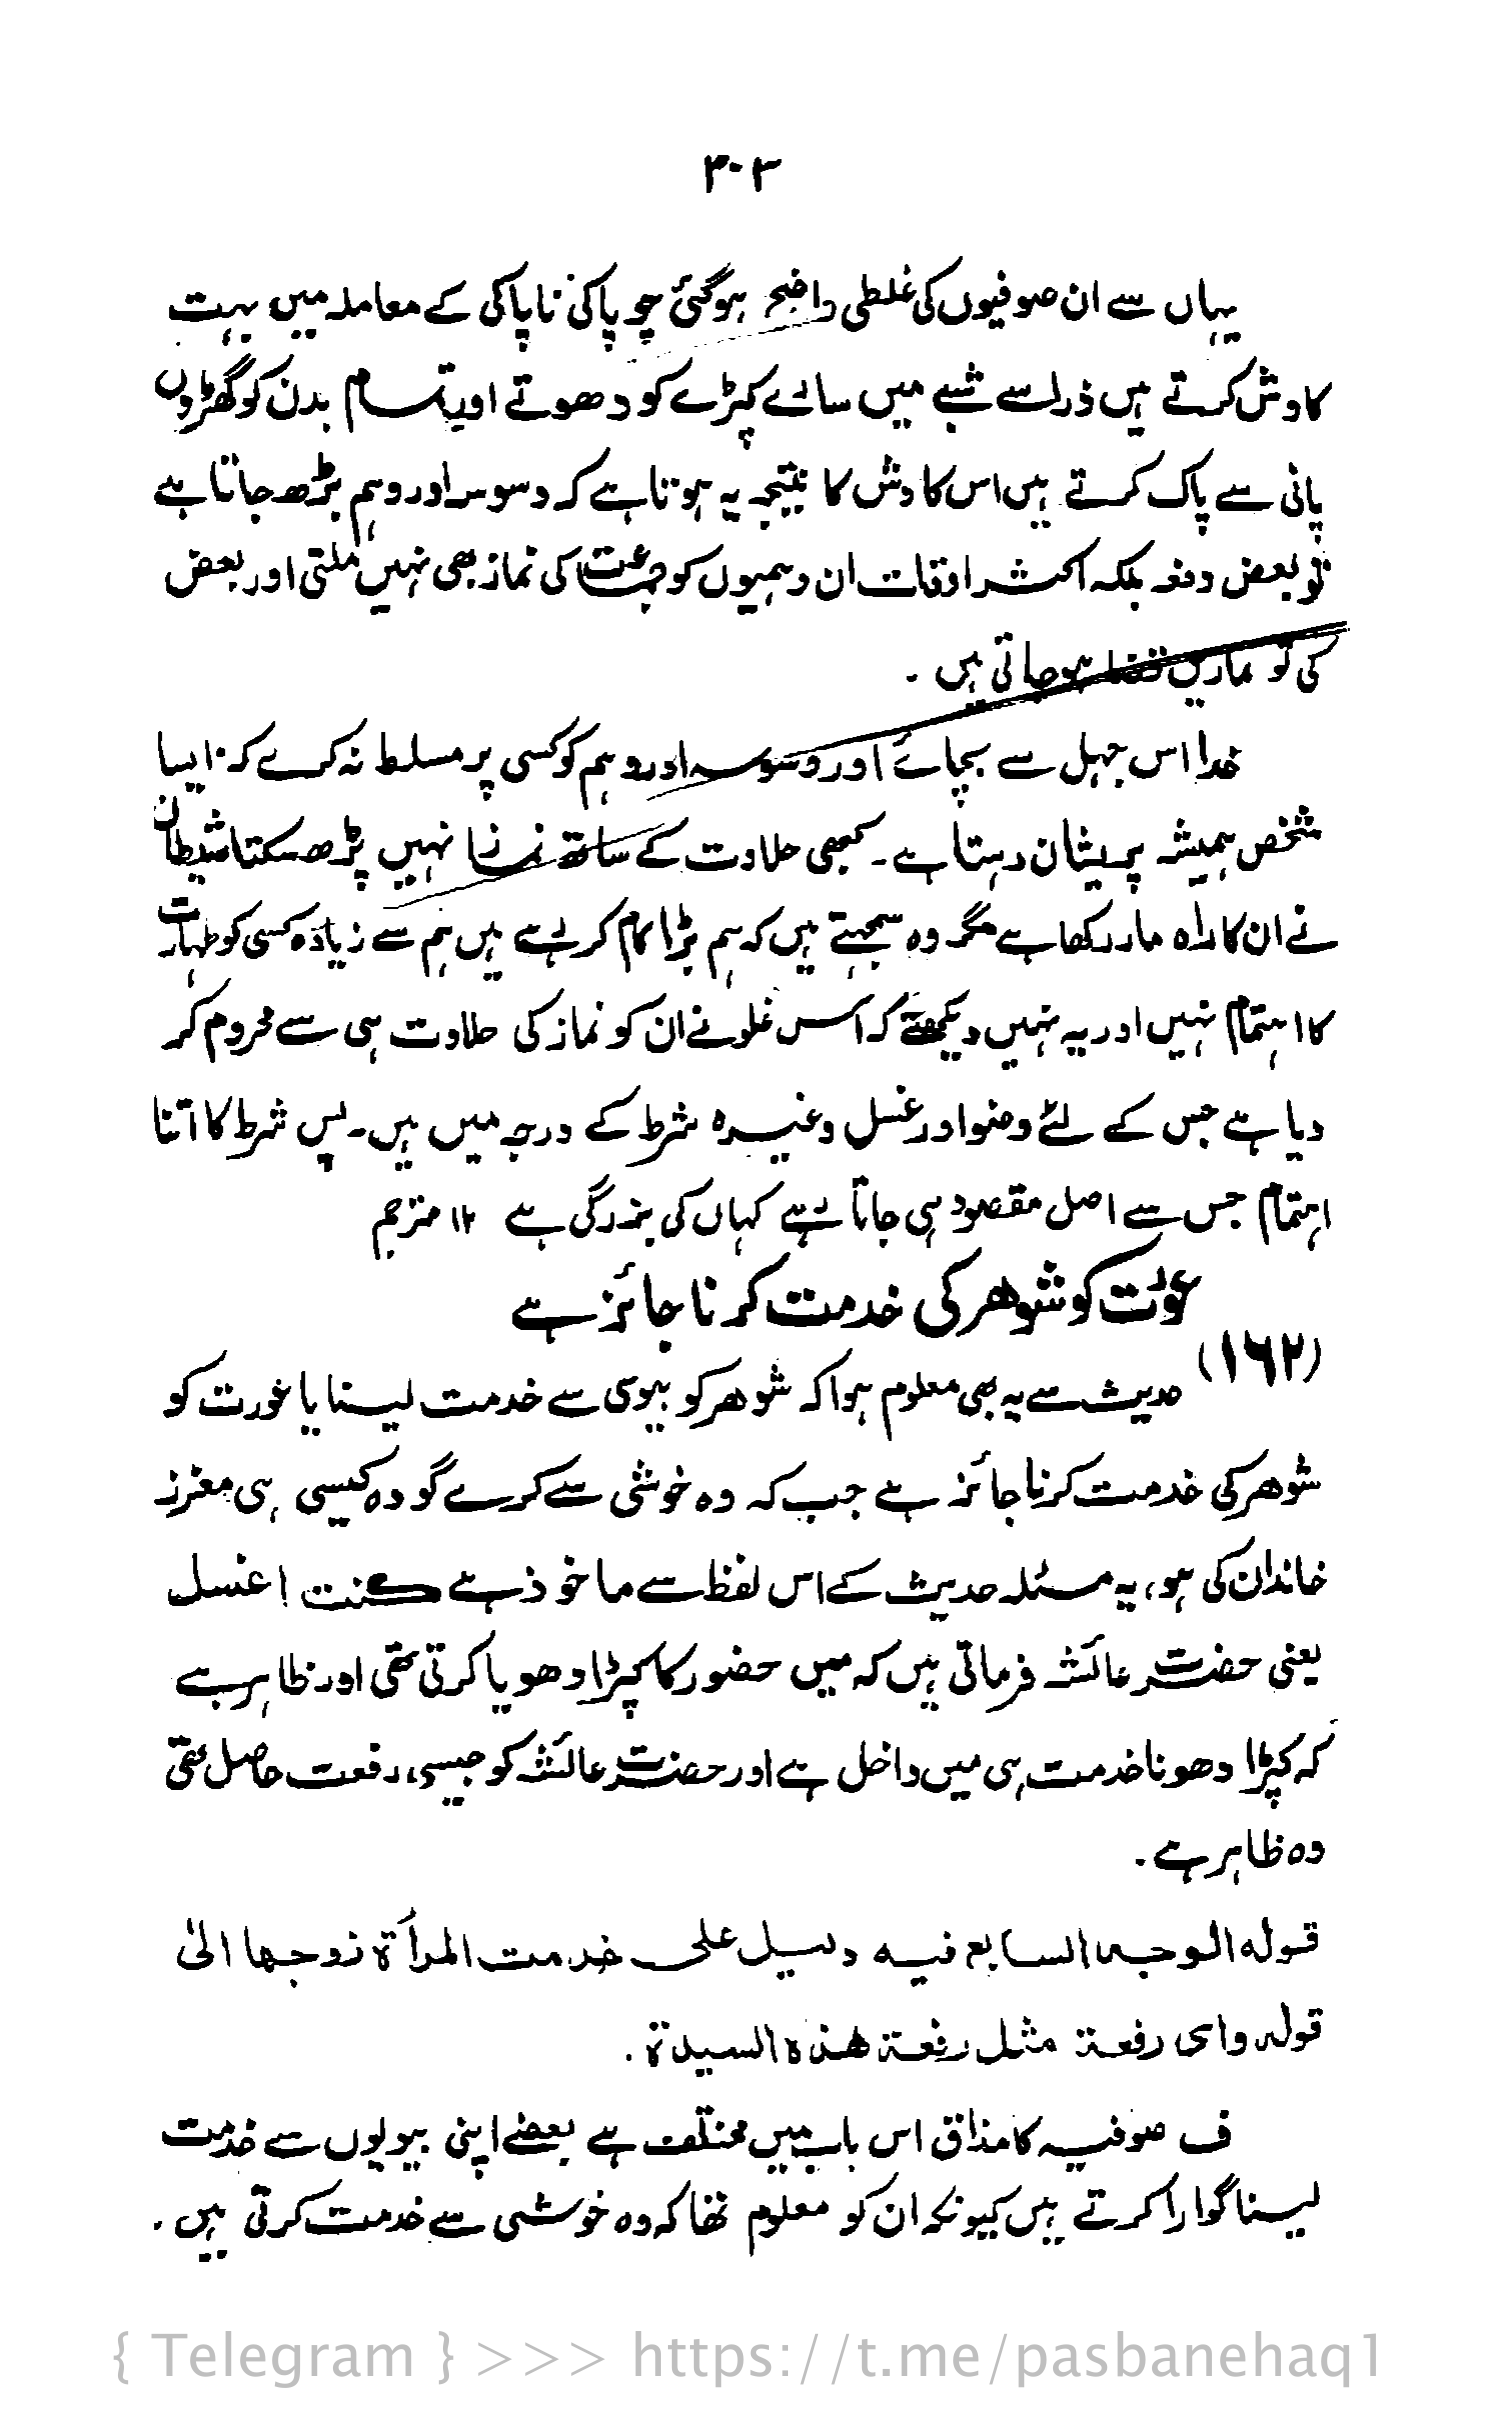 ۳۰۳
یہاں سے ان صوفیوں کی غلطی واضح ہوگئی جو پاکی ناپاکی کے معاملہ میں بہت
کاوش کرتے ہیں ذرا سے شبے میں سارے کپڑے کو دھوتے اور تمام بدن کو گھڑوں
پانی سے پاک کرتے ہیں اس کاوش کا نتیجہ یہ ہوتا ہے کہ وسوسہ اور وہم بڑھ جاتا ہے
تو بعض دفعہ بلکہ اکثر اوقات ان وہمیوں کو جماعت کی نماز بھی نہیں ملتی اور بعض
کی تو نمازیں قضا ہو جاتی ہیں ۔
خدا اس جہل سے بچائے اور وسوسہ اور وہم کو کسی پر مسلط نہ کرے کہ ایسا
شخص ہمیشہ پریشان رہتا ہے ۔ کبھی حلاوت کے ساتھ نماز نہیں پڑھ سکتا شیطان
نے ان کا راہ مار رکھا ہے مگر وہ سمجھتے ہیں کہ ہم بڑا کام کر رہے ہیں ہم سے زیادہ کسی کو طہارت
کا اہتمام نہیں اور یہ نہیں دیکھتے کہ اس غلو نے ان کو نماز کی حلاوت ہی سے محروم کر
دیا ہے جس کے لئے وضو اور غسل وغیرہ شرط کے درجہ میں ہیں ۔ پس شرط کا اتنا
اہتمام جس سے اصل مقصود ہی جاتا رہے کہاں کی بزرگی ہے ۱۲ مترجم
عورت کو شوہر کی خدمت کرنا جائز ہے
(۱۶۲) حدیث سے یہ بھی معلوم ہوا کہ شوہر کو بیوی سے خدمت لینا یا عورت کو
شوہر کی خدمت کرنا جائز ہے جب کہ وہ خوشی سے کرے گو وہ کیسی ہی معزز
خاندان کی ہو، یہ مسئلہ حدیث کے اس لفظ سے ماخوذ ہے کنت اغسل
یعنی حضرت عائشہ فرماتی ہیں کہ میں حضور کا کپڑا دھویا کرتی تھی اور ظاہر ہے
کہ کپڑا دھونا خدمت ہی میں داخل ہے اور حضرت عائشہ کو جیسی رفعت حاصل تھی
وہ ظاہر ہے ۔
قولہ الوجہ السابع فیہ دلیل علی خدمت المرأة زوجھا الیٰ
قولہ وای رفعة مثل رفعة ھذہ السیدة ۔
ف صوفیہ کا مذاق اس باب میں مختلف ہے بعضے اپنی بیویوں سے خدمت
لینا گوارا کرتے ہیں کیونکہ ان کو معلوم تھا کہ وہ خوشی سے خدمت کرتی ہیں ۔
{ Telegram } >>> https://t.me/pasbanehaq1